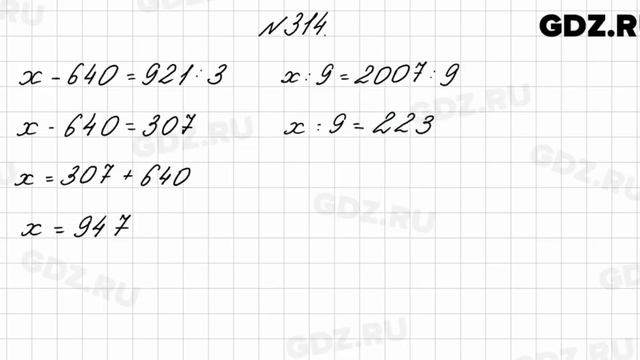 N314.
GDZ.RU
x - 640 = 921 : 3
x - 640 = 307
x = 307 + 640
x = 947
x : 9 = 2007 : 9
x : 9 = 223
GDZ.RU
GDZ.RU
GDZ.RU
GDZ.RU
GDZ.RU
GDZ.RU